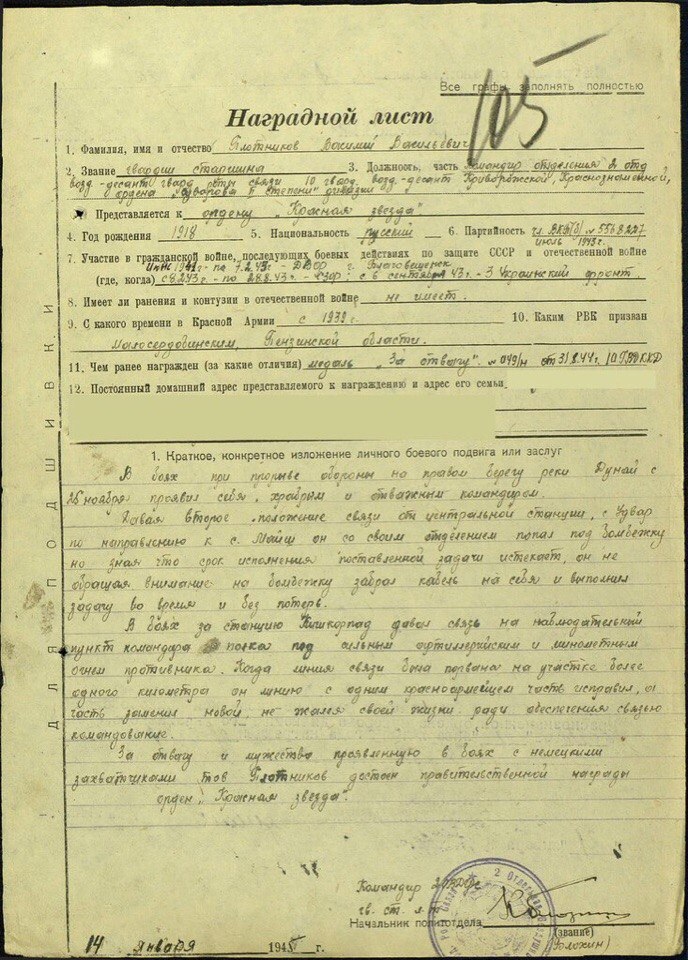 105
Все графы заполнять полностью
Наградной лист
1. Фамилия, имя и отчество Плотников Василий Васильевич
2. Звание гвардии старшина 3. Должность, часть командир отделения 2 отд
возд-десант гвард роты связи 10 гвард. возд-десант Криворожской, Краснознаменной,
ордена "Суворова II степени" дивизии
Представляется к ордену "Красная звезда"
4. Год рождения 1918 5. Национальность русский 6. Партийность чл. ВКП(б) № 5568227
июль 1943 г.
7. Участие в гражданской войне, последующих боевых действиях по защите СССР и отечественной войне
1941г- по 7.2.43г- г. Благовещенск
(где, когда) с 8.2.43г.- по 28.8.43г. - СЗФ. с 6 сентября 43г.- 3 Украинский фронт
8. Имеет ли ранения и контузии в отечественной войне не имеет.
9. С какого времени в Красной Армии с 1939 г. 10. Каким РВК призван
Малосердобинским, Пензинской области.
11. Чем ранее награжден (за какие отличия) медаль "За отвагу" № 049/н от 31.8.44г.
12. Постоянный домашний адрес представляемого к награждению и адрес его семьи
1. Краткое, конкретное изложение личного боевого подвига или заслуг
В боях при прорыве обороны на правом берегу реки Дунай с
25 ноября проявил себя, храбрым и отважным командиром.
Давая второе положение связи от центральной станции, с Удвар
по направлению к с. Майш он со своим отделением попал под бомбежку
но зная что срок исполнения поставленной задачи истекает, он не
обращая внимание на бомбежку забрал кабель на себя и выполнил
задачу во время и без потерь.
В боях за станцию Кишкорпад давал связь на наблюдательный
пункт командара полка под сильным артиллерийским и минометным
огнем противника. Когда линия связи была порвана на участке более
одного километра он линию с одним красноармейцем часть исправил, а
часть заменил новой, не жалея своей жизни ради обеспечения связью
командование.
За отвагу и мужество проявленную в боях с немецкими
захватчиками тов Плотников достоин правительственной награды
орден "Красная звезда".
Командир
гв. ст. л-т
Начальник политотдела
(звание)
(Блохин)
14 января 1945 г.
ДЛЯ ПОДШИВКИ